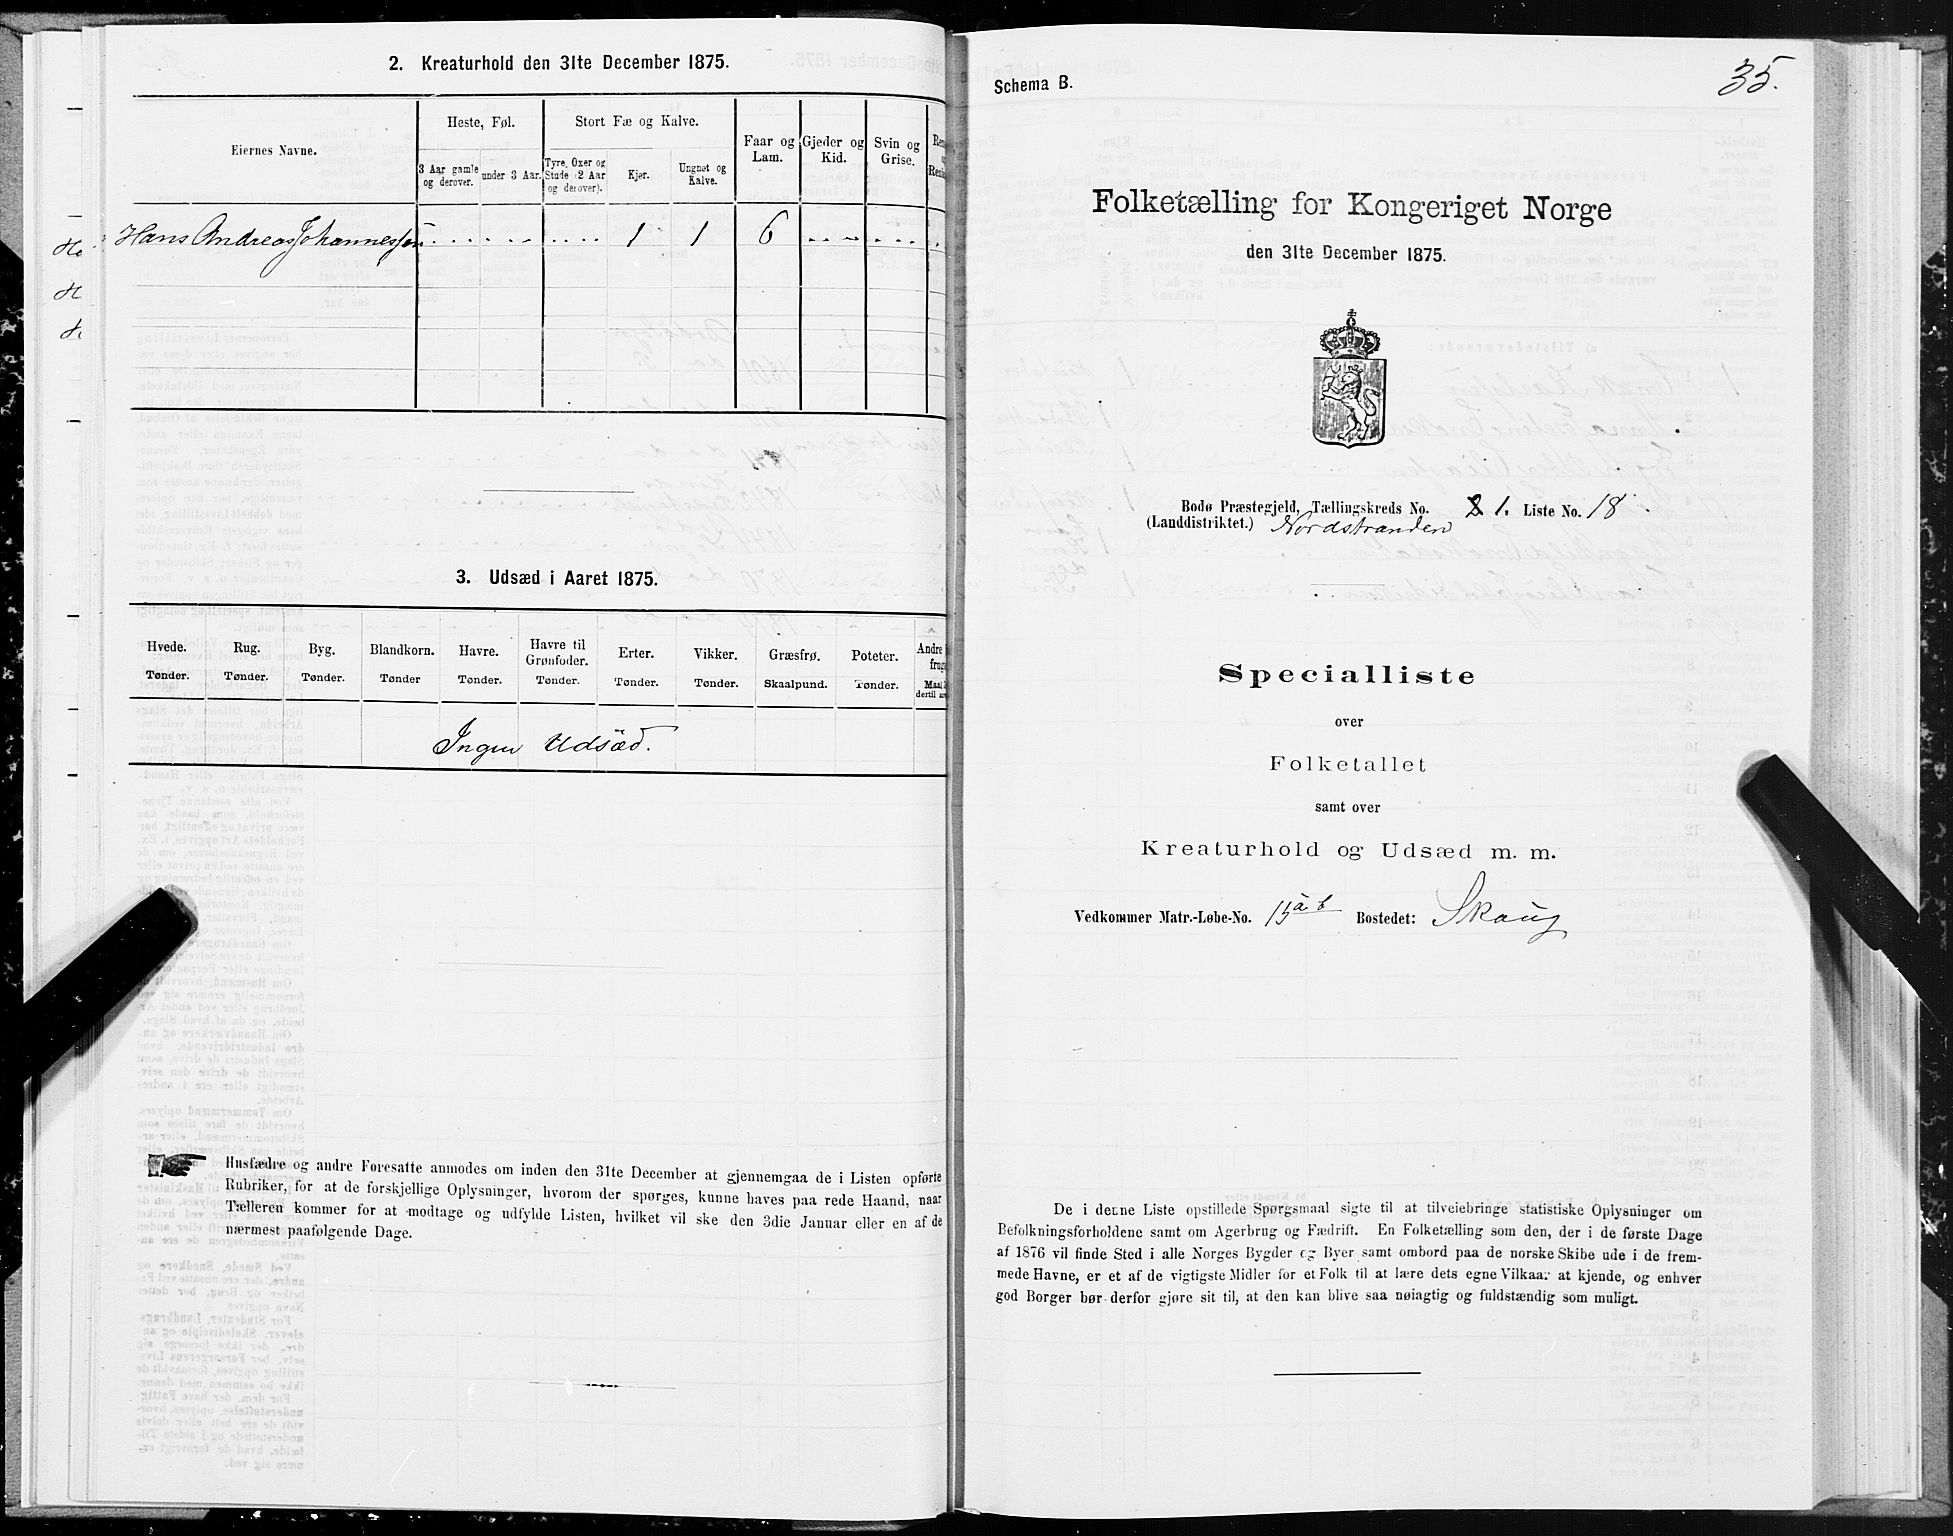 2. Kreaturhold den 31te December 1875.
Eiernes Navne.
Heste, Føl.
Stort Fæ og Kalve.
Faar og Lam.
Gjeder og Kid.
Svin og Grise.
3 Aar gamle og derover.
under 3 Aar.
Tyre, Oxer og Stude (2 Aar og derover).
Kjør.
Ungnøt og Kalve.
Hans Andreas Johannessen 1 1 6
3. Udsæd i Aaret 1875.
Hvede. Rug. Byg. Blandkorn. Havre. Havre til Grønfoder. Erter. Vikker. Græsfrø. Poteter. Andre
Tønder. Tønder. Tønder. Tønder Tønder. Tønder. Tønder. Tønder. Skaalpund. Tønder.
Ingen Udsæd.
Husfædre og andre Foresatte anmodes om inden den 31te December at gjennemgaa de i Listen opførte
Rubriker, for at de forskjellige Oplysninger, hvorom der spørges, kunne haves paa rede Haand, naar
Tælleren kommer for at modtage og udfylde Listen, hvilket vil ske den 3die Januar eller en af de
nærmest paafølgende Dage.
35.
Schema B.
Folketælling for Kongeriget Norge
den 31te December 1875.
Bodø Præstegjeld, Tællingskreds No. 1. Liste No. 18.
(Landdistriktet.) Nordstranden
Specialliste
over
Folketallet
samt over
Kreaturhold og Udsæd m. m.
Vedkommer Matr.-Løbe-No. 15 a b Bostedet: Skaug
De i denne Liste opstillede Spørgsmaal sigte til at tilveiebringe statistiske Oplysninger om
Befolkningsforholdene samt om Agerbrug og Fædrift. En Folketælling som den, der i de første Dage
af 1876 vil finde Sted i alle Norges Bygder og Byer samt ombord paa de norske Skibe ude i de frem-
mede Havne, er et af de vigtigste Midler for et Folk til at lære dets egne Vilkaar at kjende, og enhver
god Borger bør derfor gjøre sit til, at den kan blive saa nøiagtig og fuldstændig som muligt.